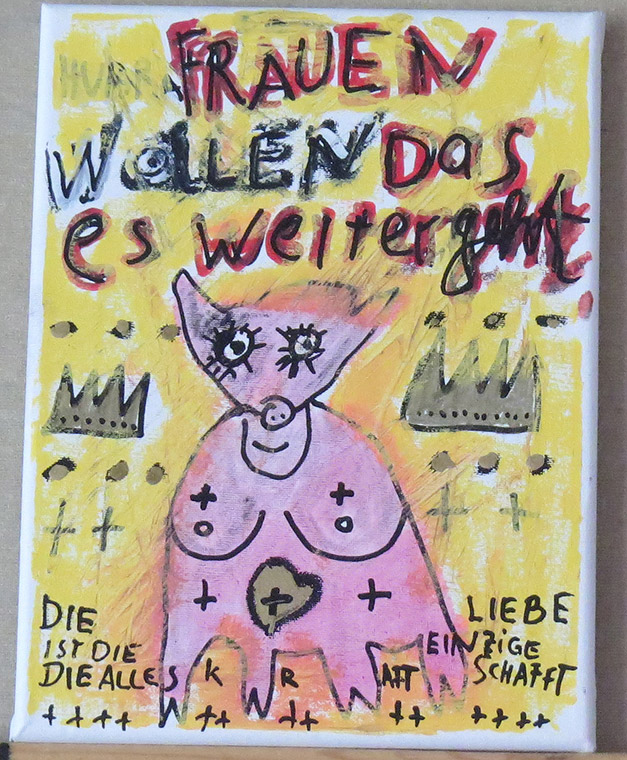 FRAUEN
WOLLEN Das
es weitergeht
DIE LIEBE
IST DIE EINZIGE
DIE ALLES KRAFT SCHAFFT